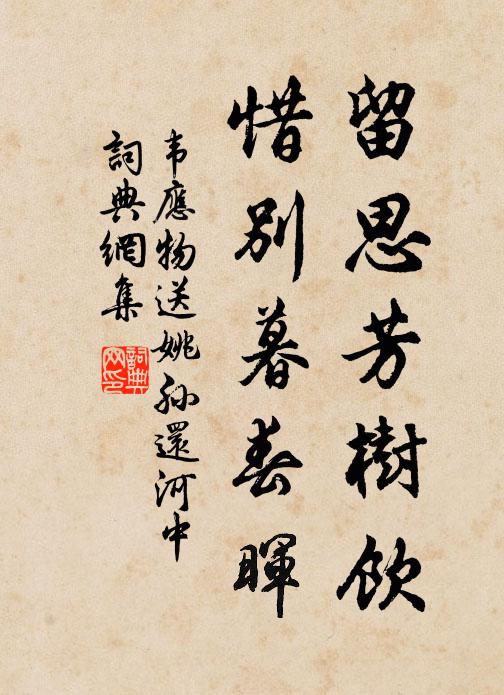 留思芳樹飲
惜別暮春暉
韦應物送姚孫還河中
詞典網集
詞典网印